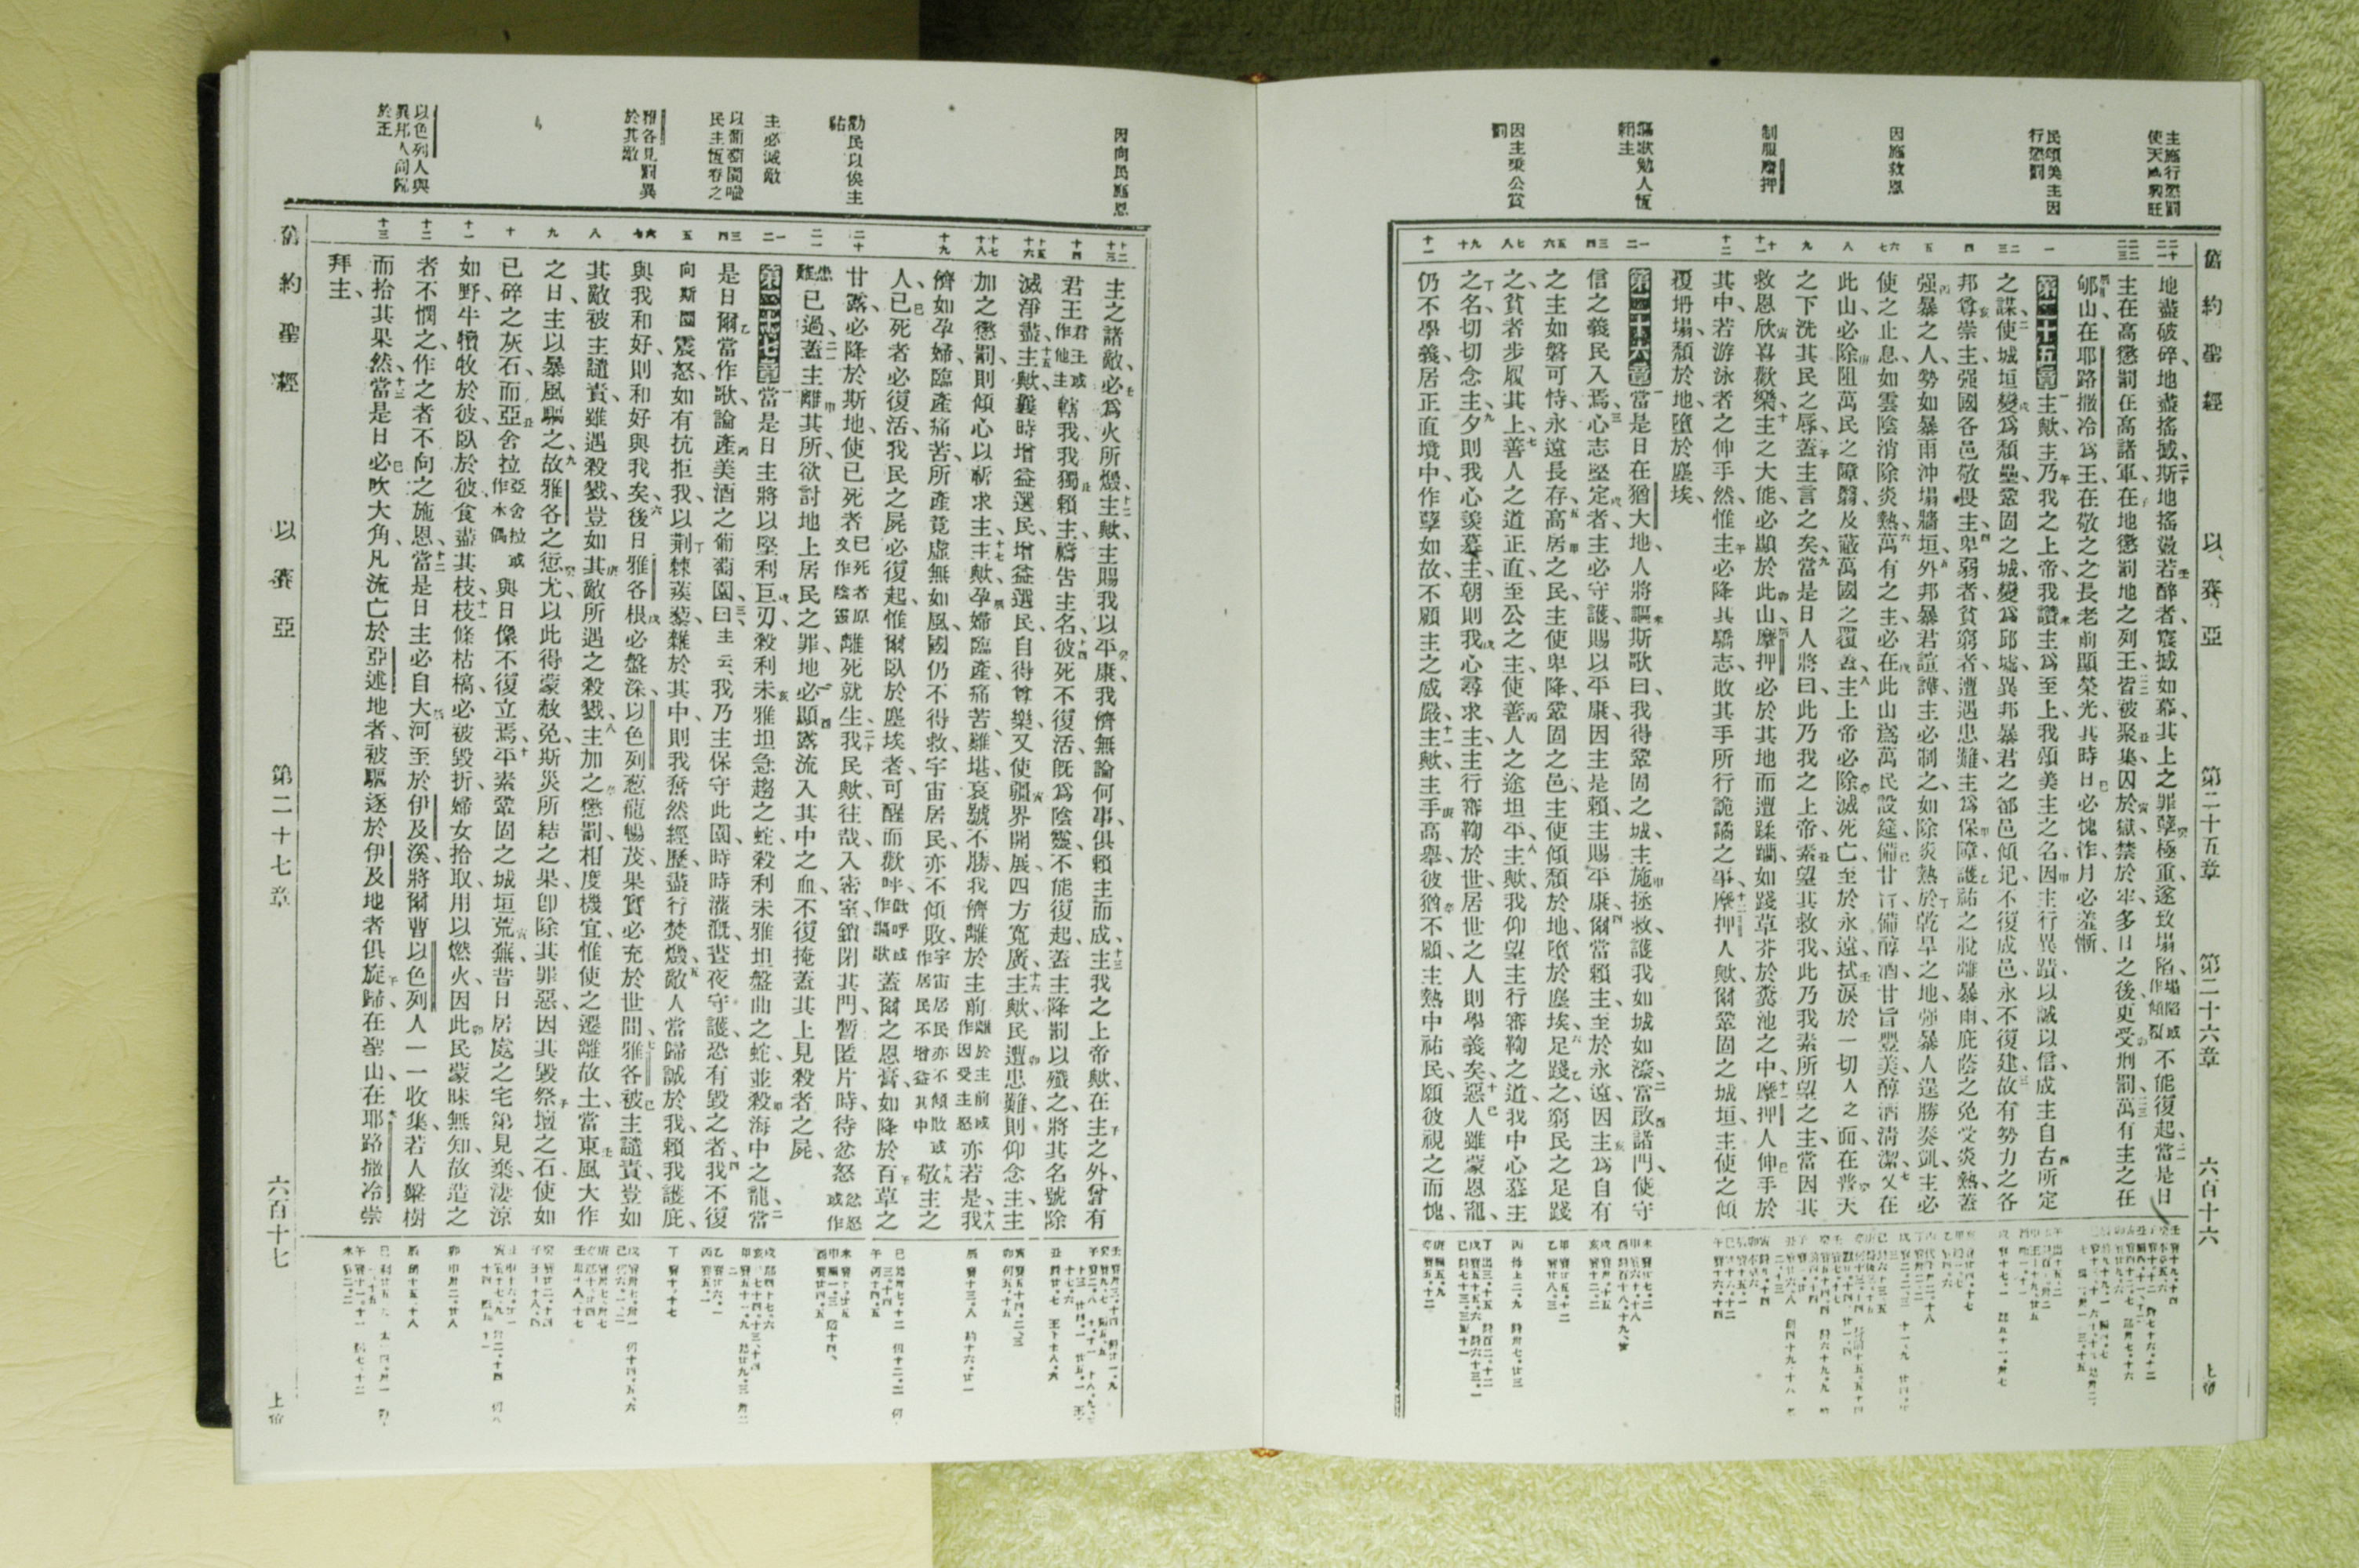 舊約聖經 以賽亞 第二十五章 第二十六章 六百十六 上帝
主施行懲罰
使天地衰旺
民頌美主因
行懲罰
因施救恩
制服摩押
謳歌勉人恆
賴主
因主秉公賞
罰
地盡破碎、地盡搖撼、斯地搖盪若醉者、震撼如幕、其上之罪孽極重、遂致塌陷、塌陷或作傾覆不能復起、當是日
主在高懲罰在高諸軍、在地懲罰地之列王、皆被聚集、囚於獄、禁於牢、多日之後、更受刑罰、萬有主之在
郇山在耶路撒冷爲王、在敬之之長老前顯榮光、其時日必愧怍、月必羞慚、
第二十五章 主歟、主乃我之上帝、我讚主爲至上、我頌美主之名、因主行異蹟、以誠以信、成主自古所定
之謀、使城垣變爲頹壘、鞏固之城、變爲邱墟、異邦暴君之都邑傾圮、不復成邑、永不復建、故有勢力之各
邦尊崇主、强國各邑敬畏主、卑弱者、貧窮者、遭遇患難、主爲保障護祐之、脫離暴雨、庇蔭之、免受炎熱、蓋
强暴之人、勢如暴雨沖塌牆垣、外邦暴君諠譁、主必制之、如除炎熱於乾旱之地、強暴人逞勝奏凱、主必
使之止息、如雲陰消除炎熱、萬有之主、必在此山爲萬民設筵、備甘旨、備醇酒、甘旨豐美、醇酒淸潔、又在
此山、必除阻萬民之障翳、及蔽萬國之覆蓋、主上帝必除滅死亡、至於永遠、拭淚於一切人之面、在普天
之下洗其民之辱、蓋主言之矣、當是日人將曰、此乃我之上帝、素望其救我、此乃我素所望之主、當因其
救恩、欣喜歡樂、主之大能、必顯於此山、摩押必於其地而遭蹂躪、如踐草芥於糞池之中、摩押人伸手於
其中、若游泳者之伸手然、惟主必降其驕志、敗其手所行詭譎之事、摩押人歟、爾鞏固之城垣、主使之傾
覆坍塌、頹於地、墮於塵埃、
第二十六章 當是日在猶大地、人將謳斯歌曰、我得鞏固之城、主施拯救、護我如城如濠、當啟諸門、使守
信之義民入焉、心志堅定者、主必守護、賜以平康、因主是賴、主賜平康、爾當賴主、至於永遠、因主爲自有
之主、如磐可恃、永遠長存、高居之民、主使卑降、鞏固之邑、主使傾頹於地、墮於塵埃、足踐之、窮民之足踐
之、貧者步履其上、善人之道正直、至公之主、使善人之途坦平、主歟、我仰望主行審鞫之道、我中心慕主
之名、切切念主、夕則我心羨慕主、朝則我心尋求主、主行審鞫於世、居世之人則學義矣、惡人雖蒙恩寵、
仍不學義、居正直境中、作孽如故、不顧主之威嚴、主歟、主手高舉、彼猶不顧、主熱中祐民、願彼視之而愧、
因向民施恩
勸民以俟主
祐
主必滅敵
以葡萄園喩
民主恆眷之
雅各見罰異
於其敵
以色列人與
異邦人同院
於主
主之諸敵、必爲火所燬、主歟、主賜我以平康、我儕無論何事、俱賴主而成、主我之上帝歟、在主之外、曾有
君王君王或作他主轄我、我獨賴主、禱告主名、彼死不復活、旣爲陰靈、不能復起、蓋主降罰以殲之、將其名號除
滅淨盡、主歟、曩時增益選民、增益選民、自得尊樂、又使疆界開展、四方寬廣、主歟、民遭患難、則仰念主、主
加之懲罰、則傾心以祈求主、主歟、孕婦臨產、痛苦難堪、哀號不勝、我儕離於主前離於主前或作因受主怒亦若是、我
儕如孕婦臨產痛苦、所產竟虛無如風、國仍不得救、宇宙居民、亦不傾敗、宇宙居民亦不傾敗或作居民不增益其中敬主之
人、已死者必復活、我民之屍必復起、惟爾臥於塵埃者、可醒而歡呼、歡呼或作謳歌蓋爾之恩膏、如降於百草之
甘露、必降於斯地、使已死者已死者原文作陰靈離死就生、我民歟、往哉、入密室、鎖閉其門、暫匿片時、待忿怒忿怒或作
患難已過、蓋主離其所、欲討地上居民之罪、地必顯露流入其中之血、不復掩蓋其上見殺者之屍、
第二十七章 當是日主將以堅利巨刃、殺利未雅坦急趨之蛇、殺利未雅坦盤曲之蛇、並殺海中之龍、當
是日爾當作歌、論產美酒之葡萄園曰、主云、我乃主保守此園、時時灌漑、晝夜守護、恐有毀之者、我不復
向斯園震怒、如有抗拒我、以荆棘蒺藜雜於其中、則我奮然經歷、盡行焚燬、敵人當歸誠於我、賴我護庇、
與我和好、則和好與我矣、後日雅各根必盤深、以色列葱蘢暢茂、果實必充於世間、雅各被主譴責、豈如
其敵被主譴責、雖遇殺戮、豈如其敵所遇之殺戮、主加之懲罰、相度機宜、惟使之遷離故土、當東風大作
之日、主以暴風驅之、故雅各之愆尤、以此得蒙赦免、斯災所結之果、卽除其罪惡、因其毀祭壇之石、使如
已碎之灰石、而亞舍拉亞舍拉或作木偶與日像不復立焉、平素鞏固之城垣荒蕪、昔日居處之宅第見棄、淒涼
如野、牛犢牧於彼、臥於彼、食盡其枝、枝條枯槁、必被毀折、婦女拾取、用以燃火、因此民蒙昧無知、故造之
者不憫之、作之者不向之施恩、當是日主必自大河至於伊及溪、將爾曹以色列人一一收集、若人擊樹
而拾其果然、當是日必吹大角、凡流亡於亞述地者、被驅逐於伊及地者、俱旋歸、在聖山、在耶路撒冷崇
拜主、
舊約聖經 以賽亞 第二十七章 六百十七 上帝